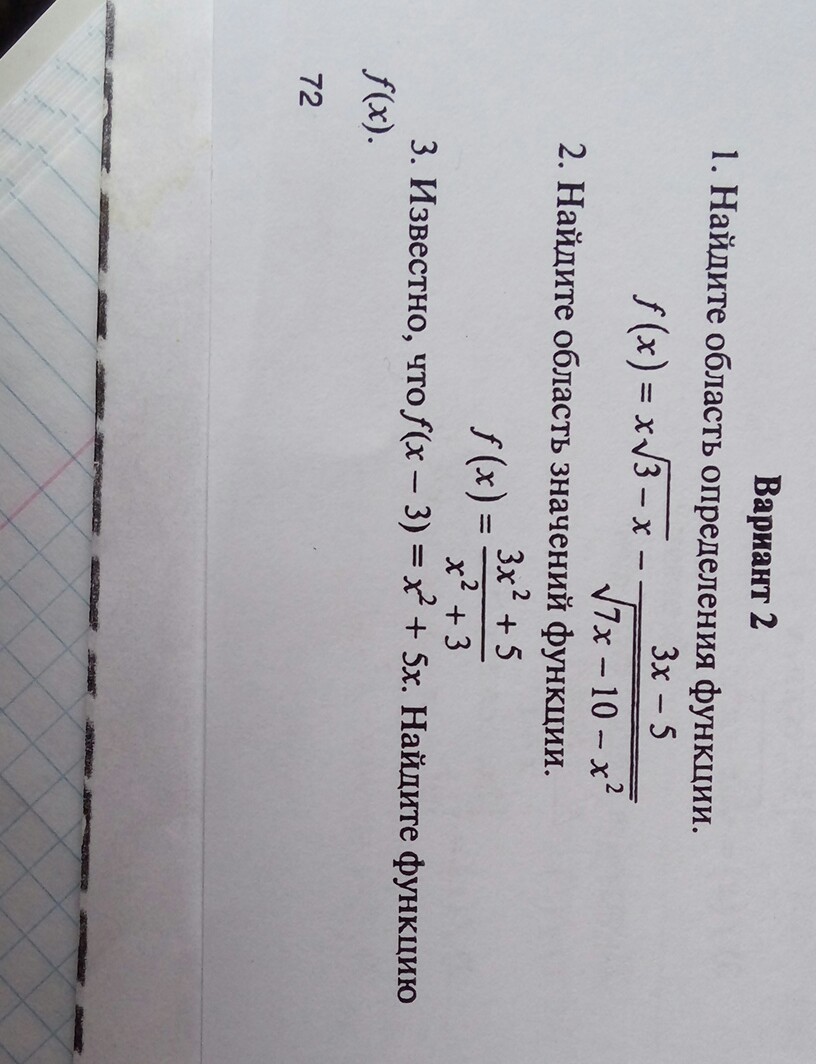 Вариант 2
1. Найдите область определения функции.
f(x) = x√(3 − x) − (3x − 5)/√(7x − 10 − x²)
2. Найдите область значений функции.
f(x) = (3x² + 5)/(x² + 3)
3. Известно, что f(x − 3) = x² + 5x. Найдите функцию
f(x).
72